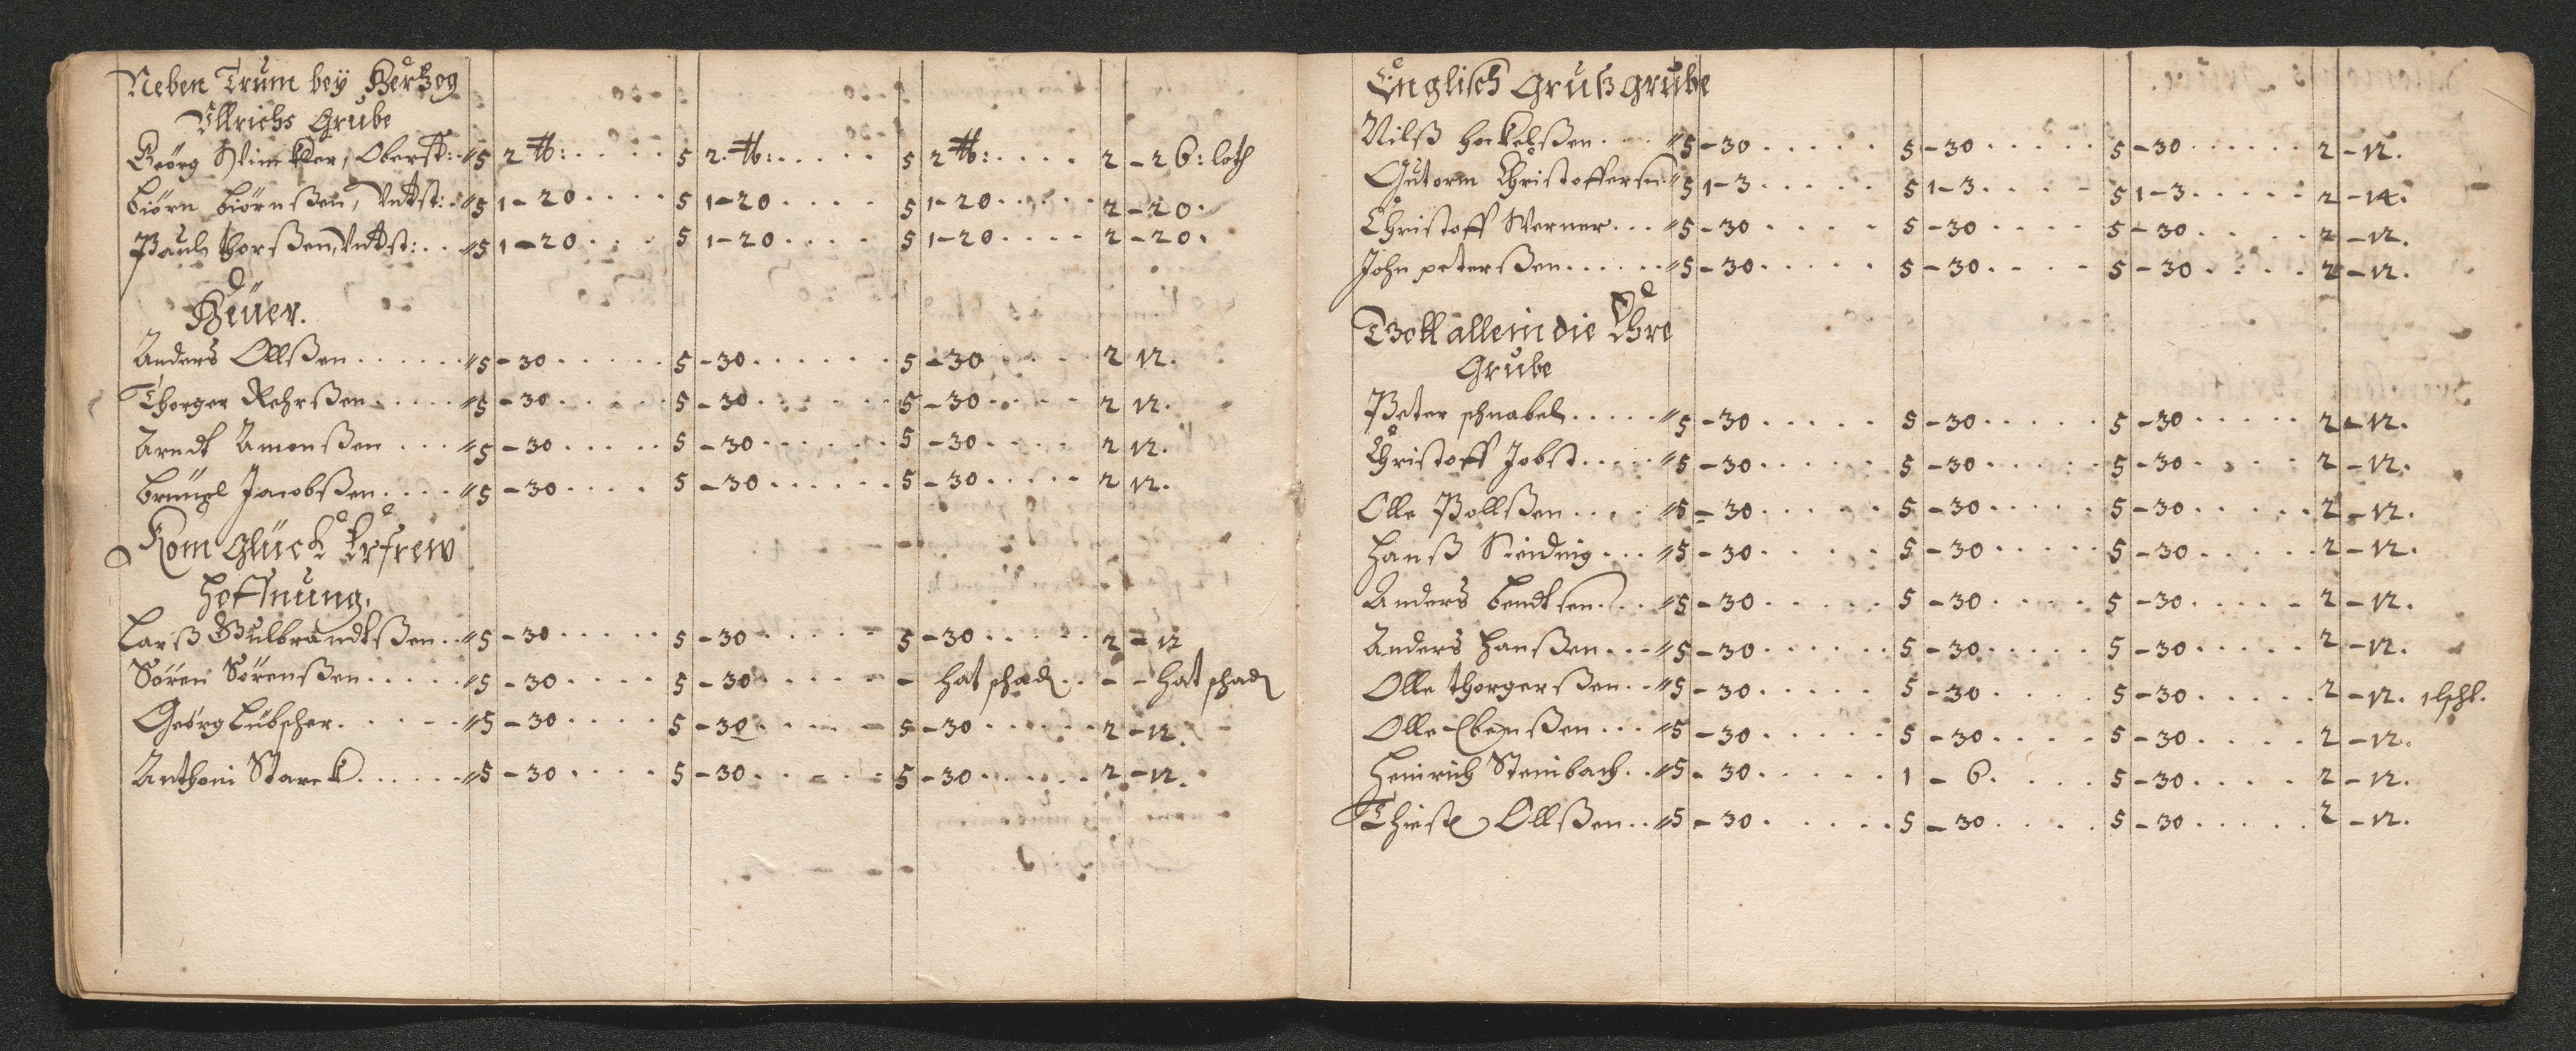 Neben Trum beÿ Hertzog
Ullrichs Grube
Georg Winckler, Oberst: 5 2 ℔: 5 2. ℔: 5 2 ℔: 2 - 26: loth
Biörn Biörnßen, Undst: 5 1-20 5 1-20 5 1-20 2 - 20.
Paul Thorßen, Undst: 5 1-20 5 1-20 5 1-20 2 - 20.
Heüer.
Anders Ollßen 5 - 30 5 - 30 5 - 30 2 12.
Thorger Rehrßen 5 - 30 5 - 30 5 - 30 2 12.
Arndt Amonßen 5 - 30 5 - 30 5 - 30 2 12.
Jacobßen 5 - 30 5 - 30 5 - 30 2 12.
Kom Glück Erfrew
Hoffnung.
Larß Gulbrandtßen 5 - 30 5 - 30 5 - 30 2 - 12
Sören Sörenßen 5 - 30 5 - 30 - hat schad - - hat schad
Georg Lübscher 5 - 30 5 - 30 5 - 30 2 - 12.
Anthoni Starck 5 - 30 5 - 30 5 - 30 2 - 12.
Englisch Gruß grube
Nilß Hockelßen 5 - 30 5 - 30 5 - 30 2 - 12.
Gutorm Christoffersen 5 1-3 5 1-3 5 1-3 2 - 14.
Christoff Werner 5 - 30 5 - 30 5 - 30 2 - 12.
John peterßen 5 - 30 5 - 30 5 - 30 2 - 12.
Gott allein die Ehre
Grube
Peter schnabel 5 - 30 5 - 30 5 - 30 2 - 12.
Christoff Jobst 5 - 30 5 - 30 5 - 30 2 - 12.
Olle Pollßen 5 - 30 5 - 30 5 - 30 2 - 12.
Hanß 5 - 30 5 - 30 5 - 30 2 - 12.
Anders Bendtsen 5 - 30 5 - 30 5 - 30 2 - 12.
Anders Hanßen 5 - 30 5 - 30 5 - 30 2 - 12.
Olle Thorgerßen 5 - 30 5 - 30 5 - 30 2 - 12.
Olle Ebenßen 5 - 30 5 - 30 5 - 30 2 - 12.
Heinrich Steinbach 5 - 30 1 - 6 5 - 30 2 - 12.
Ollßen 5 - 30 5 - 30 5 - 30 2 - 12.